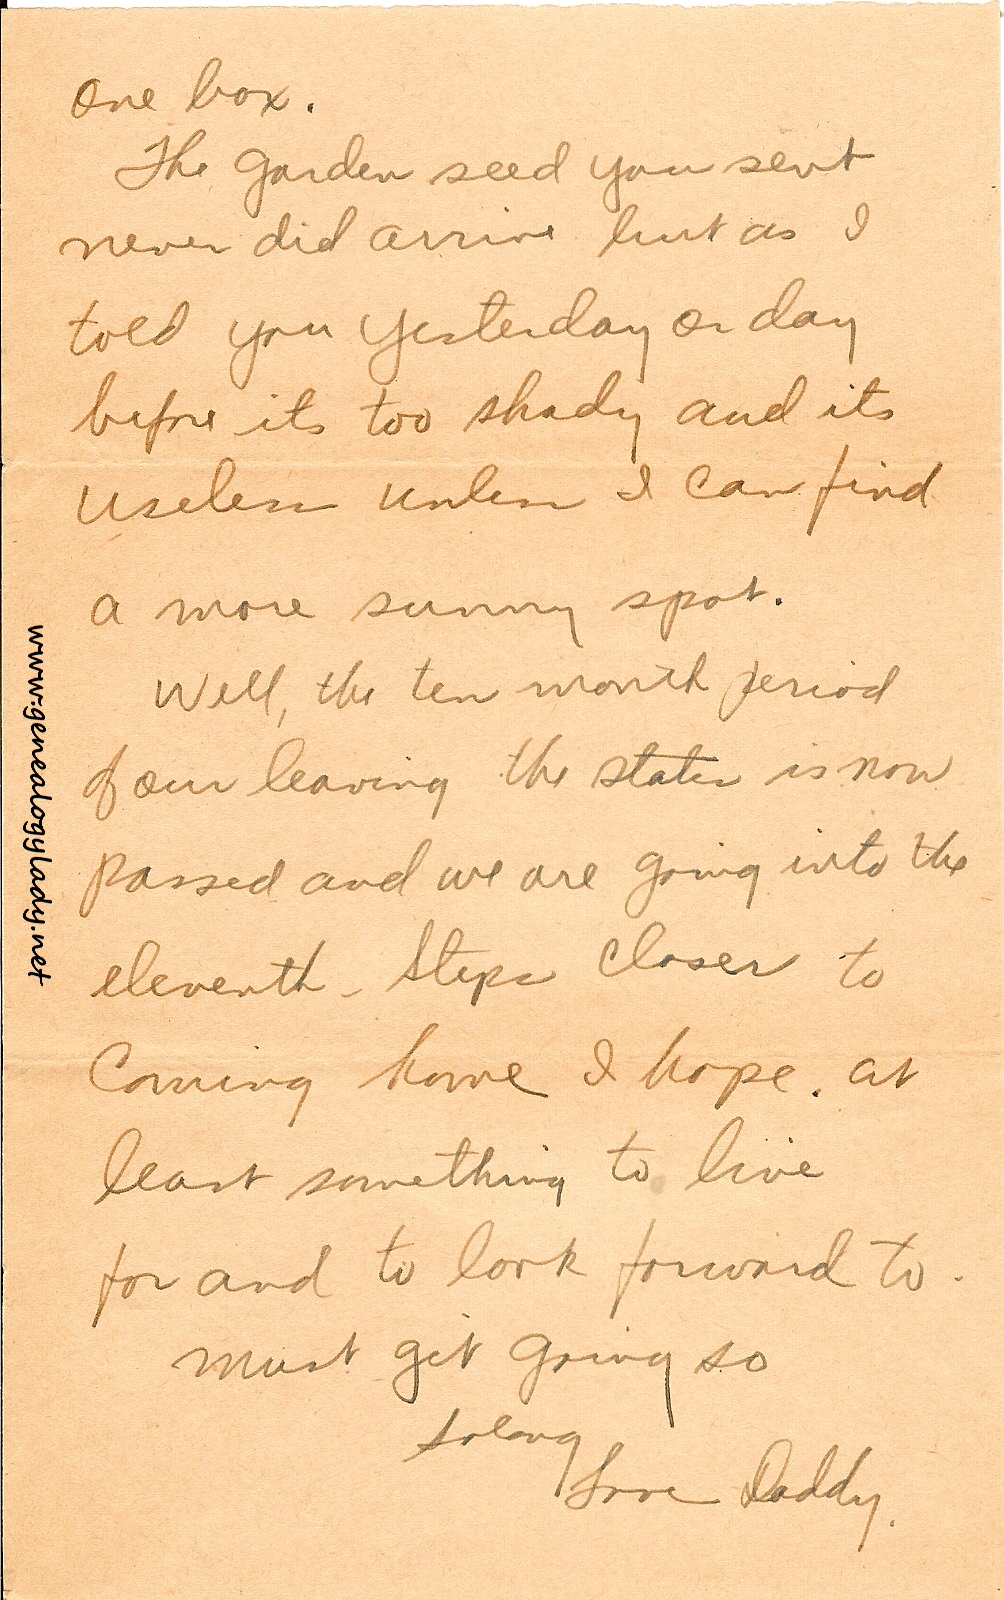 one box.
The garden seed you sent
never did arrive but as I
told you yesterday or day
before its too shady and its
useless unless I can find
a more sunny spot.
Well, the ten month period
of our leaving the states is now
passed and we are going into the
eleventh - Steps closer to
coming home I hope. at
least something to live
for and to look forward to.
must get going so
solong
Love Daddy.
www.genealogylady.net